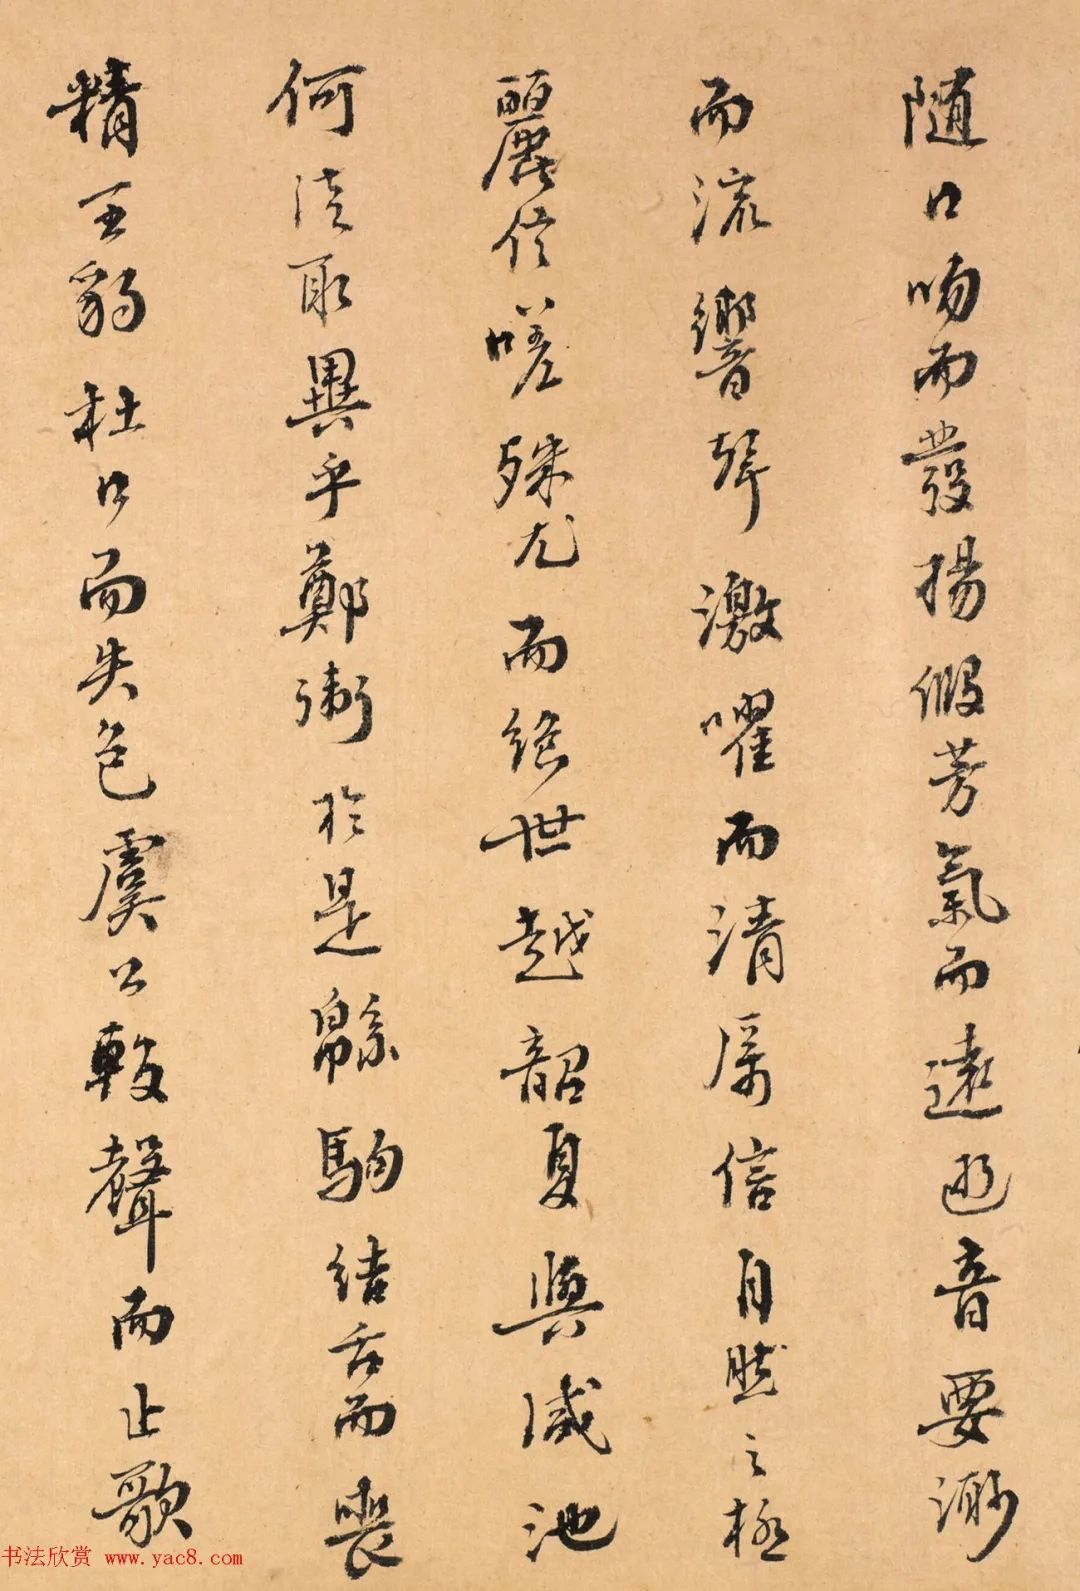 隨口吻而發揚假芳氣而遠逝音要渺
而流響聲激嚁而清厲信自然之極
麗信嗟殊尤而絕世越韶夏與咸池
何徒取異乎鄭衛於是緜駒結舌而喪
精王豹杜口而失色虞公輟聲而止歌
书法欣赏 www.yac8.com